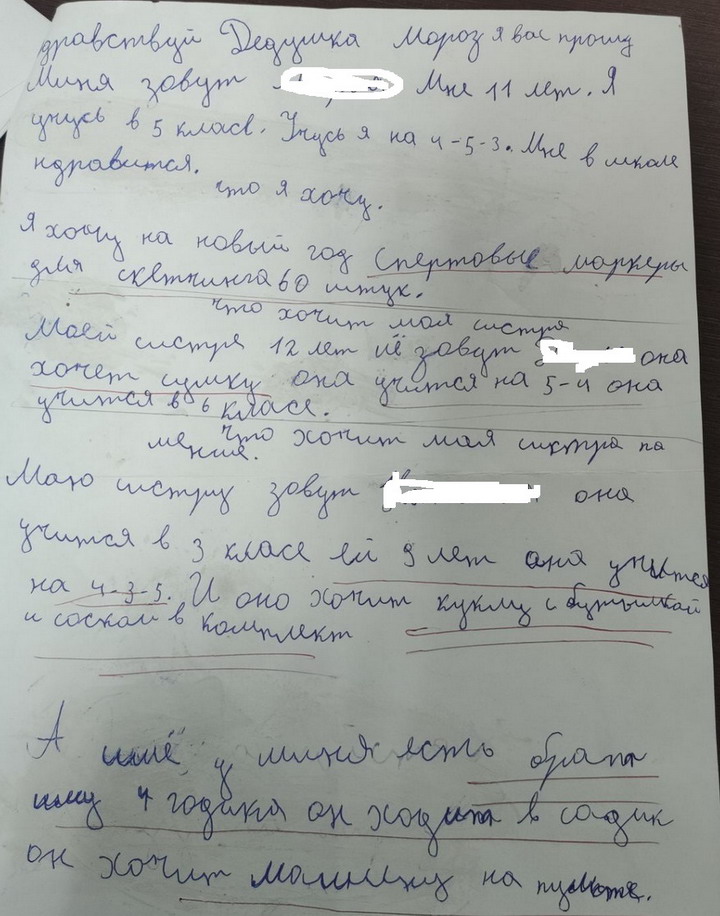 дравствуй Дедушка Мороз я вас прошу
Миня зовут Мне 11 лет. Я
учусь в 5 класе. Учусь я на 4-5-3. Мне в школе
ндравится.
что я хочу.
Я хочу на новый год спертовые маркеры
для скетчинга 60 штук.
что хочит мая систра
Маей систре 12 лет её зовут она
хочет сумку она учится на 5-4 она
учится в 6 класе.
что хочит мая систра па
менше.
Маю систру зовут она
учится в 3 класе ей 9 лет она учится
на 4-3-5. И оно хочит куклу с бутылкай
и соскай в комплект
А ишё у миня есть брат
ему 4 годика он ходит в садик
он хочит машинку на пульте.